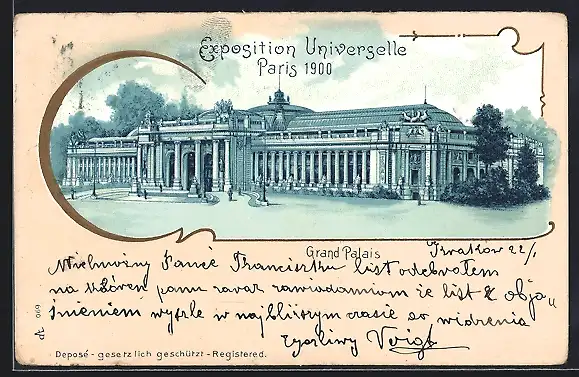 Exposition Universelle
Paris 1900
Grand Palais
Kraków 22/1
Panie Franciszku list odebrałem
na który panu zaraz zawiadamiam że list z obja„
śnieniem wyszle w najbliższym czasie do widzenia
Życzliwy Voigt
690
Deposé - gesetzlich geschützt - Registered.